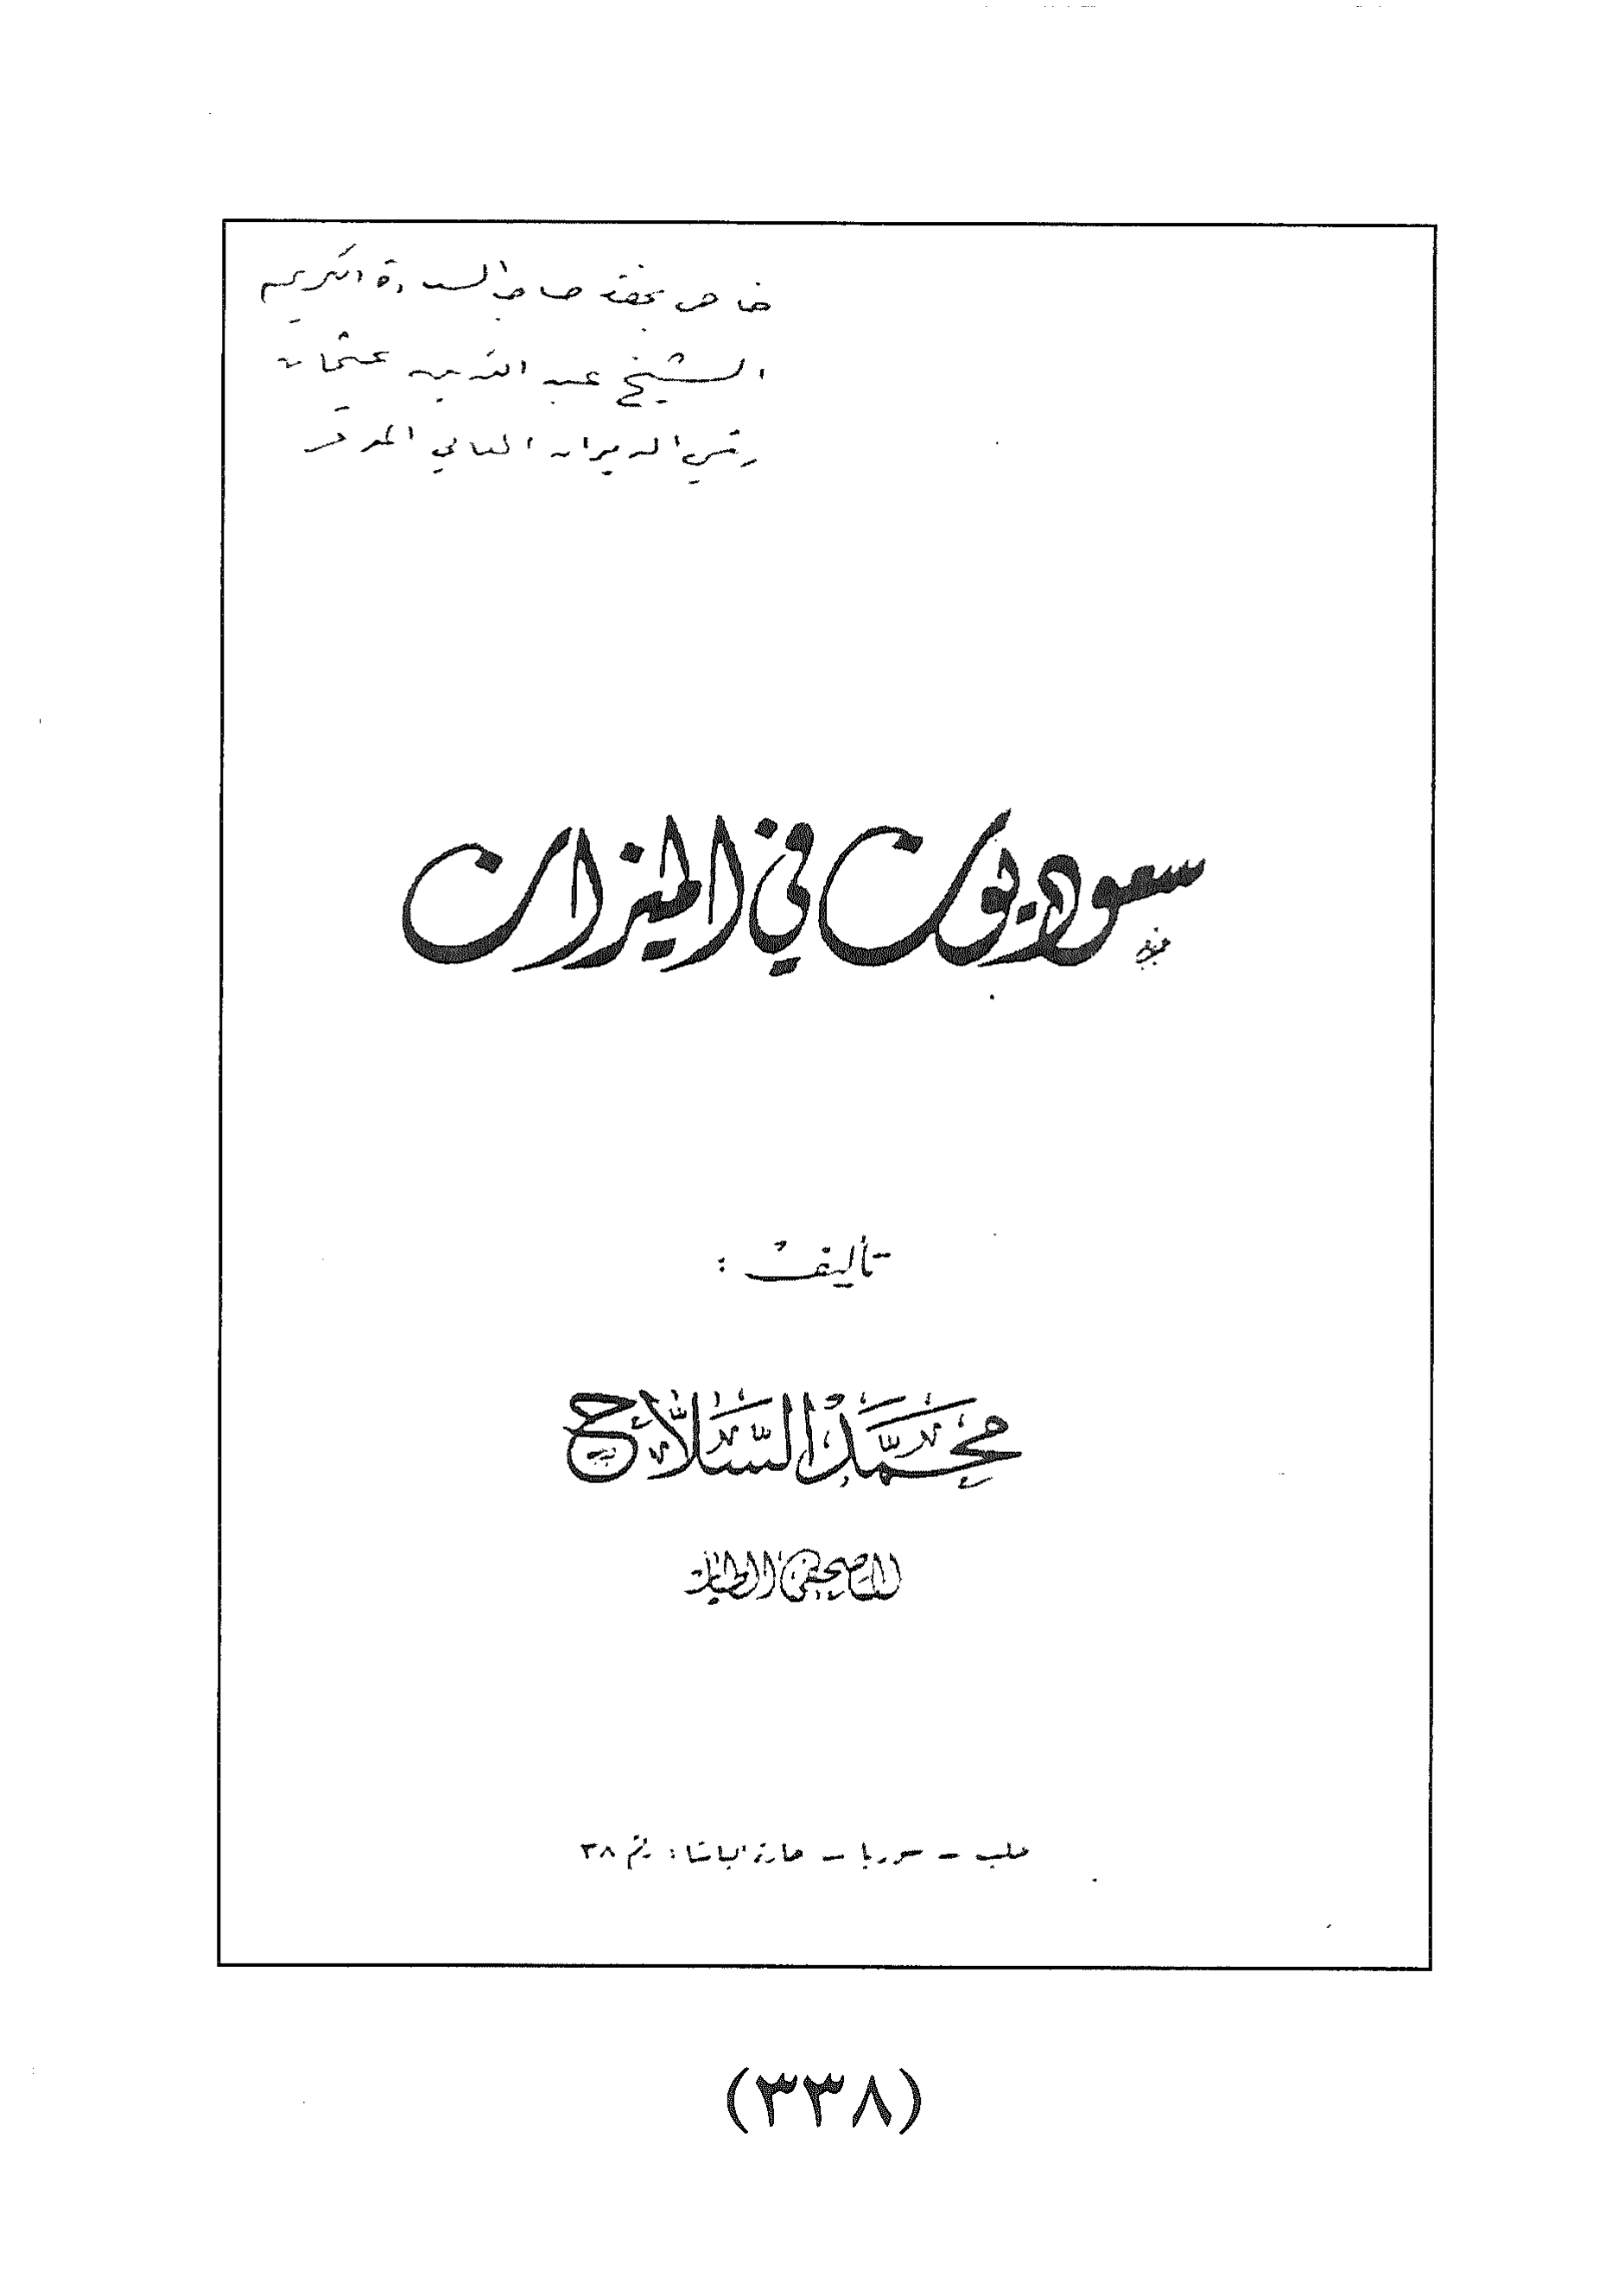 خاص بحضرة صاحب السعادة الكريم
الشيخ عبد الله بن عثمان
رئيس الديوان العالي الموقر
سعوديون في الميزان
تأليف :
محمد السلاح
الصحفي الطيار
حلب - سوريا - حارة الباشا : رقم ٣٨
(٣٣٨)